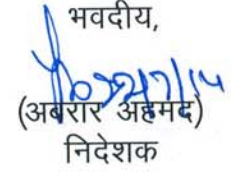 भवदीय,
(अबरार अहमद)
निदेशक